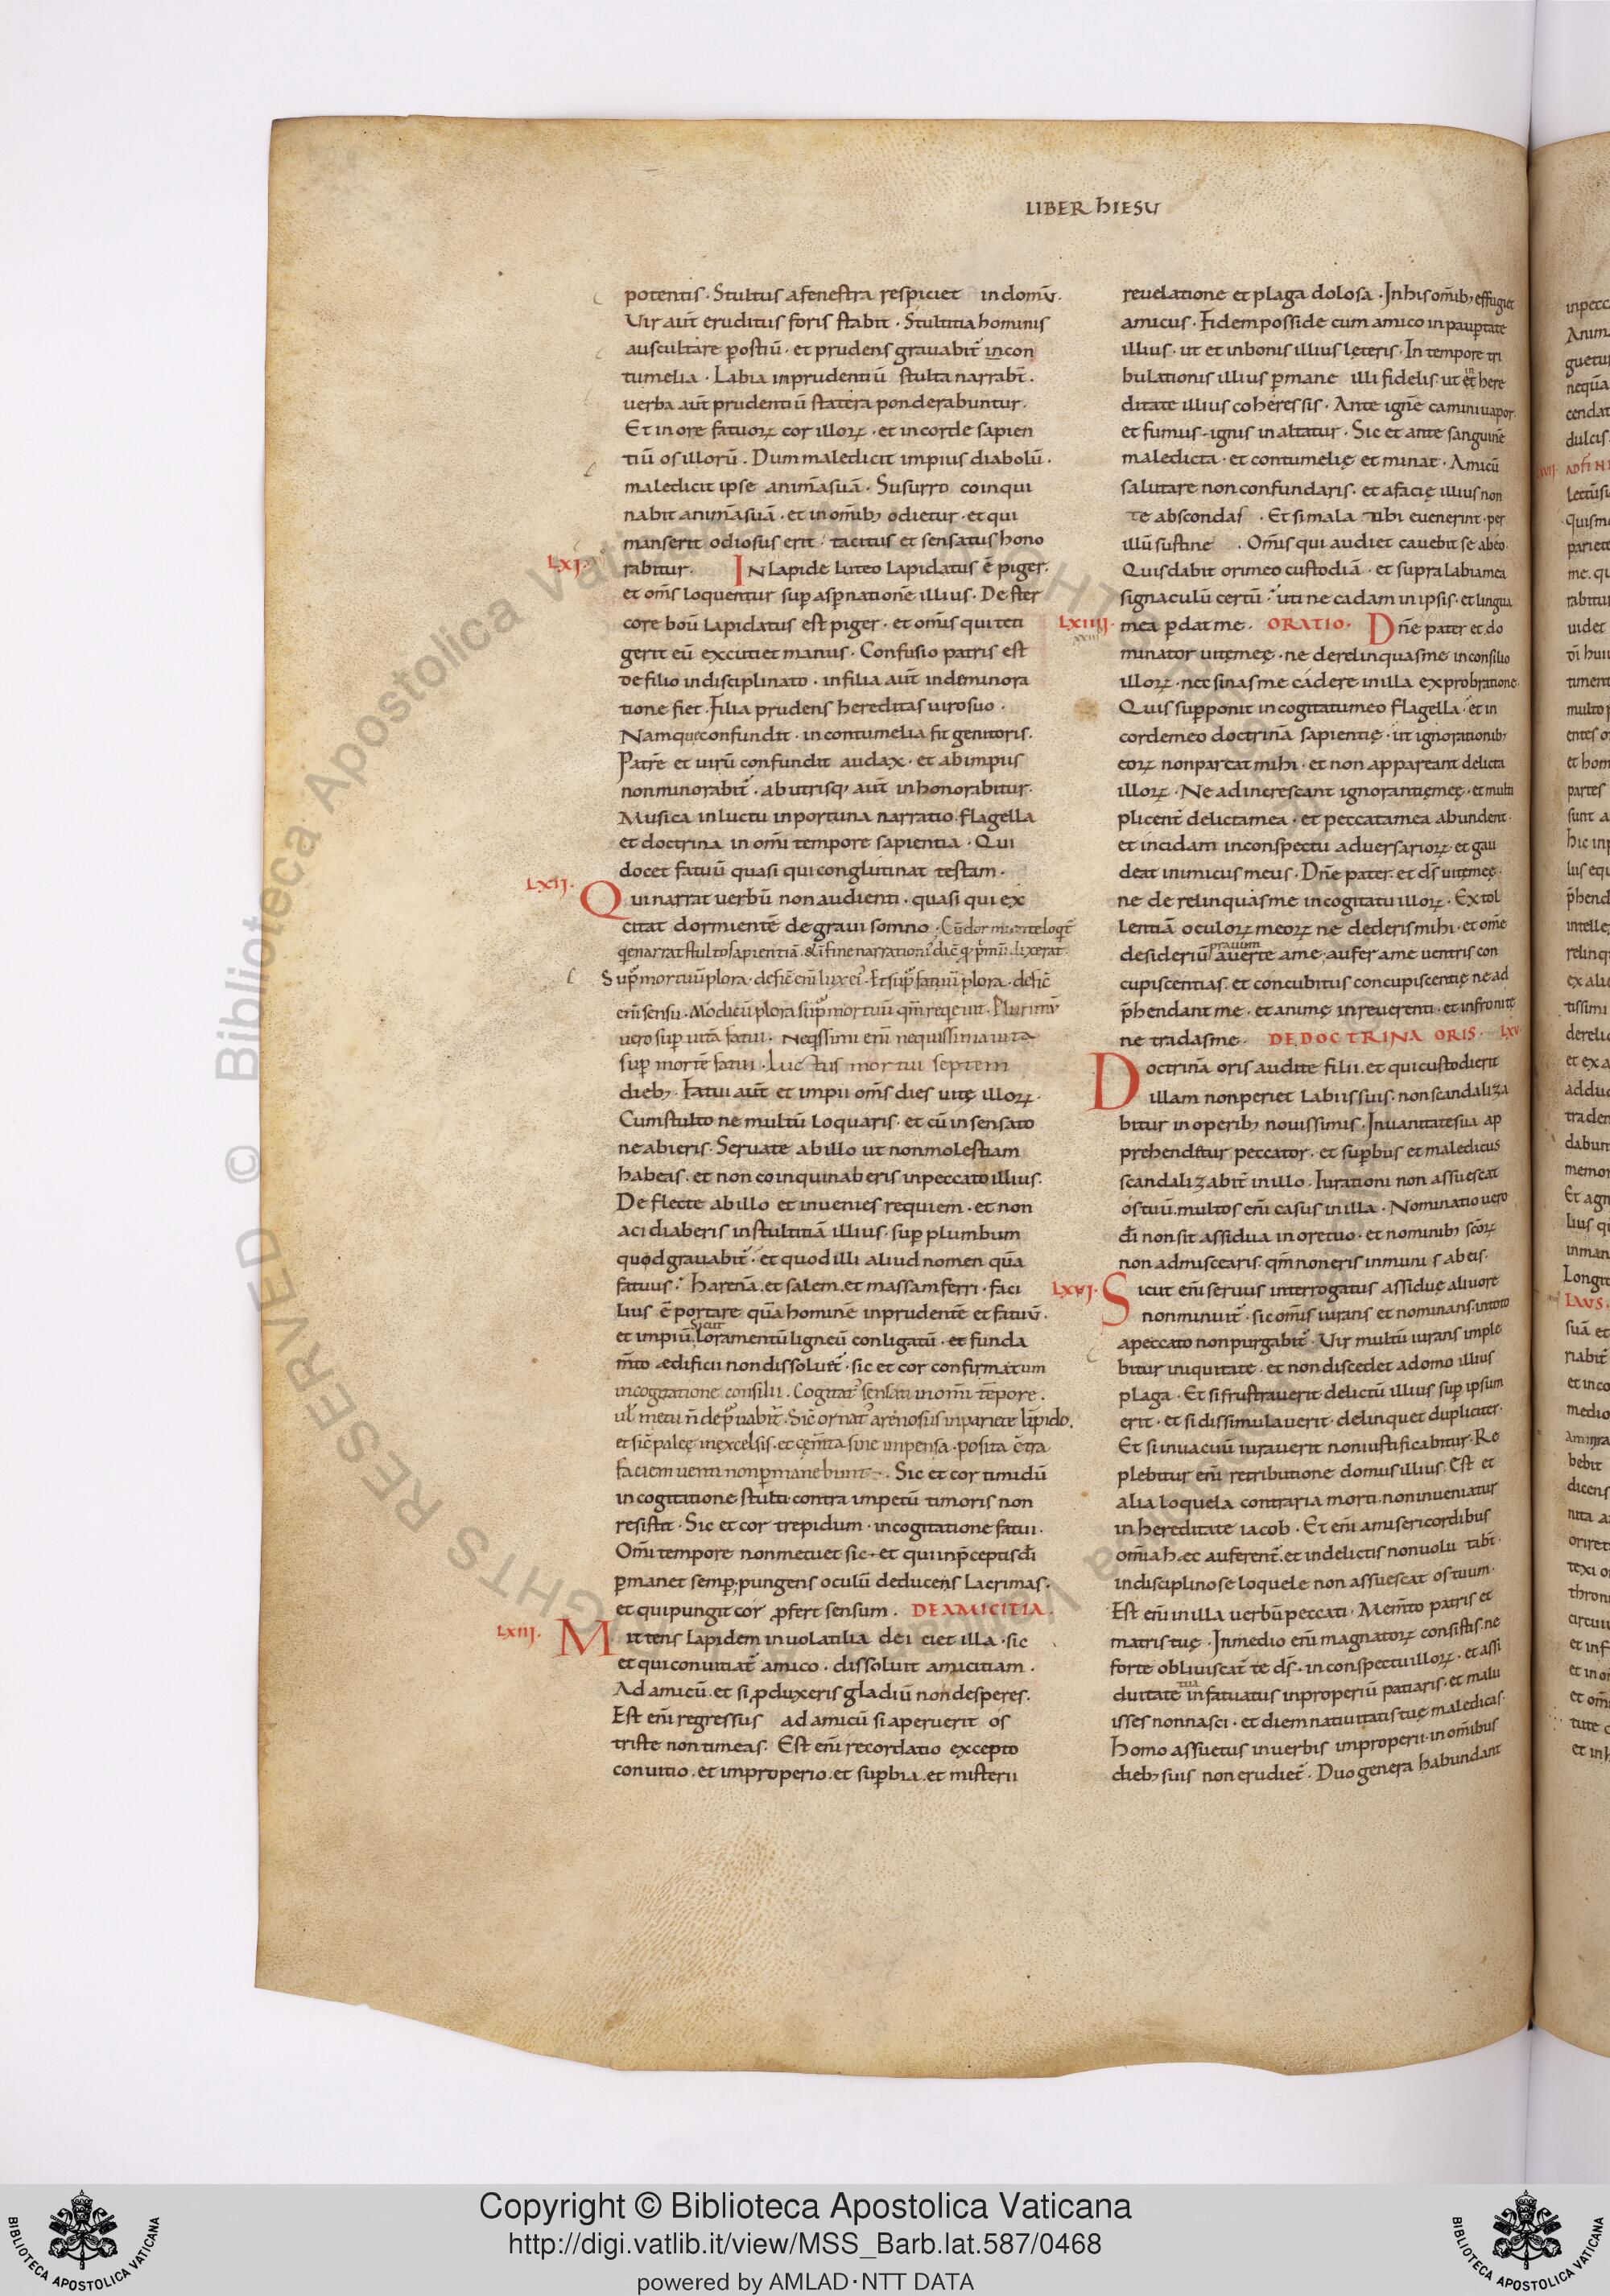 LIBER hIESU
potentis · Stultus a fenestra respiciet in domū ·
Vir aut̄ eruditus foris stabit · Stultitia hominis
auscultare p ostiū · et prudens gravabit̄ in con
tumelia · Labia inprudentiū stulta narrabt̄ ·
verba aut̄ prudentiū statera ponderabuntur ·
Et in ore fatuoꝝ cor illoꝝ · et in corde sapien
tiū os illorū · Dum maledicit impius diabolū ·
maledicit ipse animā suā · Susurro coinqui
nabit animā suā · et in omīb; odietur · et qui
manserit odiosus erit · tacitus et sensatus hono
LXI· rabitur · IN lapide luteo lapidatus ē piger ·
et om̄s loquentur sup aspnatione illius · De ster
core boū lapidatus est piger · et omīs qui teti
gerit eū excutiet manus · Confusio patris est
de filio indisciplinato · in filia aut̄ in deminora
tione fiet · Filia prudens hereditas viro suo ·
Nam que confundit · in contumelia fit genitoris ·
Patrē et virū confundit audax · et ab impiis
non minorabit̄ · ab utrisq; aut̄ inhonorabitur ·
Musica in luctu inportuna narratio · flagella
et doctrina in omī tempore sapientia · Qui
docet fatuū quasi qui conglutinat testam ·
LXII· Qui narrat verbū non audienti · quasi qui ex
citat dormientē de gravi somno · Cū dormiente loqt̄
q enarrat stulto sapientiā · & ī fine narrationis dic̄
Supͣ mortuū plora · defic̄ enī lux ei᷒ · Et supͣ fatuū plora · defic̄
enī sensu · Modicū plora supͣ mortuū qm̄ reqevit
vero sup vitā fatui · Neqssimi enī nequissima vita
sup mortē fatui · Luctus mortui septem
dieb; · Fatui aut̄ et impii om̄s dies vitę illoꝝ ·
Cum stulto ne multū loquaris · et cū insensato
ne abieris · Servate ab illo ut non molestiam
habeas · et non coinquinaberis in peccato illius ·
Deflecte ab illo et invenies requiem · et non
acidiaberis in stultitiā illius · sup plumbum
quod gravabit̄ · et quod illi aliud nomen quā
fatuus · harenā · et salem · et massam ferri · faci
lius ē portare quā hominē inprudentē et fatuū ·
et impiū · Sicut loramentū ligneū conligatū · et funda
mt̄o ædificii non dissolvet̄ · sic et cor confirmatum
in cogitatione consilii · Cogitat᷒ sensati in omī tēpore ·
ul̄ metu n̄ depͣvabit̄ · Sic̄ ornat᷒ arenosus in pariete līpido ·
et sic̄ palee in excelsis · et cęm̄ta sine impensa · posita c̄tra
faciem venti non pmanebunt · Sic et cor timidū
in cogitatione stulti contra impetū timoris non
resistit · Sic et cor trepidum · in cogitatione fatui ·
Omī tempore non metuet sic · et qui in p̄ceptis dī
pmanet semp · pungens oculū deducens lacrimas ·
et qui pungit cor pfert sensum · DE AMICITIA ·
LXIII· Mittens lapidem in volatilia deiciet illa · sic
et qui conviciat̄ amico · dissolvit amicitiam ·
Ad amicū · et si pduxeris gladiū non desperes ·
Est enī regressus ad amicū si aperuerit os
triste non timeas · Est enī recordatio excepto
convitio · et improperio · et supbia · et misterii
revelatione et plaga dolosa · In his omīb; effugiet
amicus · Fidem posside cum amico in paupertate
illius · ut et in bonis illius lęteris · In tempore tri
bulationis illius pmane illi fidelis · ut et in here
ditate illius coheres sis · Ante ignē camini vapor ·
et fumus · ignis inaltatur · Sic et ante sanguinē
maledicta · et contumelię et minæ · Amicū
salutare non confundaris · et a facię illius non
te abscondas · Et si mala tibi evenerint · per
illū sustine · Omīs qui audiet cavebit se ab eo ·
Quis dabit ori meo custodiā · et supra labia mea
signaculū certū · uti ne cadam in ipsis · et lingua
LXIIII· mea pdat me · ORATIO · Dn̄e pater et do
minator vitę meę · ne derelinquas me in consilio
illoꝝ · nec sinas me cadere in illa exprobratione ·
Quis supponit in cogitatu meo flagella · et in
corde meo doctrinā sapientię · ut ignorationib;
eoꝝ non parcat mihi · et non appareant delicta
illoꝝ · Ne adincrescant ignorantię meę · et multi
plicent̄ delicta mea · et peccata mea abundent ·
et incidam in conspectu adversarioꝝ · et gau
deat inimicus meus · Dn̄e pater · et ds̄ vitę meę ·
ne derelinquas me in cogitatu illoꝝ · Extol
lentiā oculoꝝ meoꝝ ne dederis mihi · et om̄e
desideriū pravum averte a me · aufer a me ventris con
cupiscentias · et concubitus concupiscentię ne ad
p̄hendant me · et animę inreverenti · et infronitę
ne tradas me · DE DOCTRINA ORIS · LXV
Doctrinā oris audite filii · et qui custodierit
illam non periet labiis suis · non scandaliza
bitur in operib; novissimis · In vanitate sua ap
prehenditur peccator · et supbus et maledicus
scandalizabit̄ in illo · Iurationi non assuescat
os tuū · multos enī casus in illa · Nominatio vero
dī non sit assidua in ore tuo · et nominib; sc̄oꝝ
non admiscearis · qm̄ non eris inmunis ab eis ·
LXVI· Sicut enī servus interrogatus assiduę a livore
non minuit̄ · sic omīs iurans et nominans · in toto
a peccato non purgabit̄ · Vir multū iurans imple
bitur iniquitate · et non discedet a domo illius
plaga · Et si frustraverit · delictū illius sup ipsum
erit · et si dissimulaverit · delinquet dupliciter ·
Et si in vacuū iuraverit non iustificabitur · Re
plebitur enī retributione domus illius · Est et
alia loquela contraria morti · non inveniatur
in hereditate iacob · Et enī a misericordibus
omīa hæc auferent̄ · et in delictis non volutabt̄ ·
indisciplinose loquele non assuescat os tuum ·
Est enī in illa verbū peccati · Mem̄to patris et
matris tuę · In medio enī magnatoꝝ consistis · ne
forte obliviscat̄ te ds̄ · in conspectu illoꝝ · et assi
duitate tua infatuatus inproperiū patiaris · et malu
isses non nasci · et diem nativitatis tuę maledicas ·
Homo assuetus in verbis improperii · in omībus
dieb; suis non erudiet̄ · Duo genera habundant
Copyright © Biblioteca Apostolica Vaticana
http://digi.vatlib.it/view/MSS_Barb.lat.587/0468
powered by AMLAD·NTT DATA